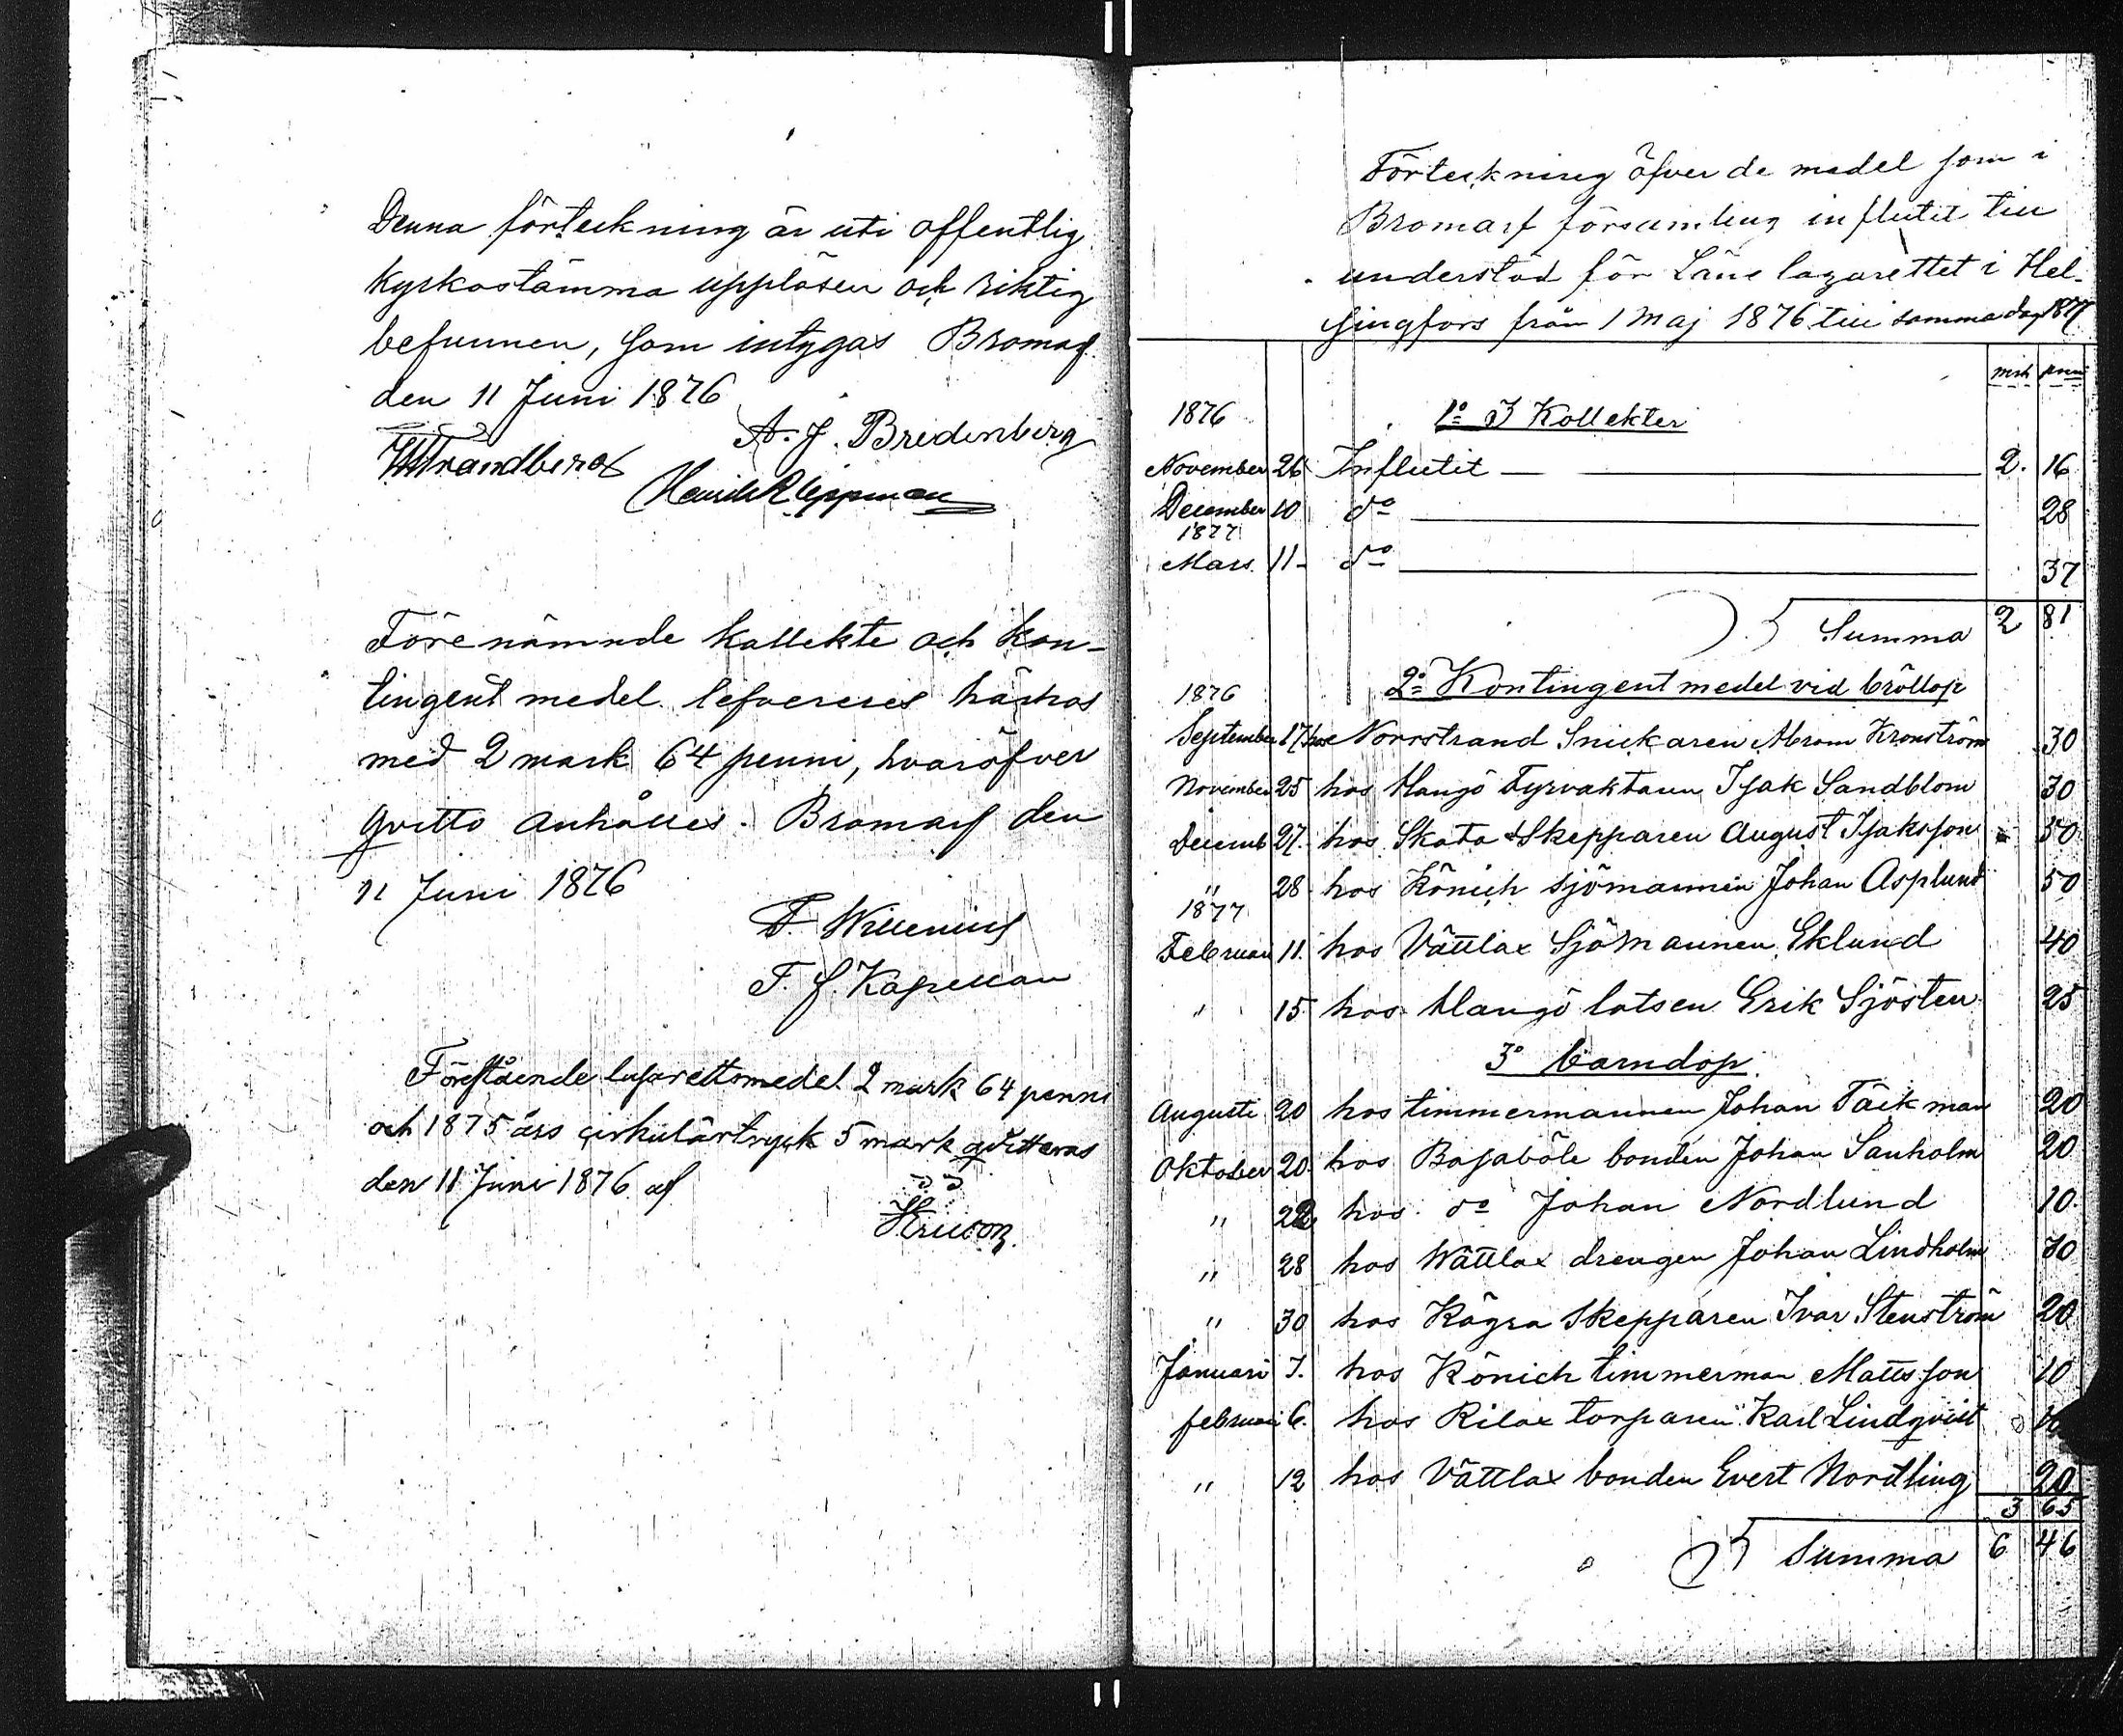 Denna förteckning är uti offentlig
kyrkostämma uppläsen och riktig
befunnen, som intygas Bromarf
den 11 Juni 1876
A. J. Bredenberg
Strandberg
Henrik Klippman
Förenämnde kollekte och kon-
tingent medel lefvereres härhos
med 2 mark 64 penni, hvaröfver
qvitto anhålles. Bromarf den
11 Juni 1876
F. Willenius
T. f. Kapellan
Förestående lasarettsmedel 2 mark 64 penni
och 1875 års cirkulärtryck 5 mark qvitteras
den 11 Juni 1876 af
Förteckning öfver de medel som i
Bromarf församling influtit till
understöd för Läns lazarettet i Hel-
singfors från 1 Maj 1876 till samma dag 1877
mrk pni
1876 1o I Kollekter
November 26 Influtit 2. 16
December 10 do 28
1877
Mars. 11 do 37
Summa 2 81
1876 2o Kontingent medel vid bröllop
September 17 hos Norrstrand Snickaren Abram Kronström 30
November 25 hos Hangö Fyrvaktaren Isak Sandblom 30
Decemb 27. hos Skata Skepparen August Isaksson 50
" 28 hos Könich sjömannen Johan Asplund 50
1877
Februari 11. hos Vättlax Sjömannen Eklund 40
" 15 hos Hangö lotsen Erik Sjösten 25
3o barndop
Augusti 20 hos timmermannen Johan Täckman 20
Oktober 20. hos Bajaböle bonden Johan Sanholm 20
" 22 hos do Johan Nordlund 10.
" 28 hos Wättlax drengen Johan Lindholm 30
" 30 hos Kågra Skepparen Ivar Stenström 20
Januari 7. hos Könich timmerman Mattsson 10
februari 6. hos Rilax torparen Karl Lindqvist
" 12 hos Vättlax bonden Evert Nordling 20
3 65
Summa 6 46